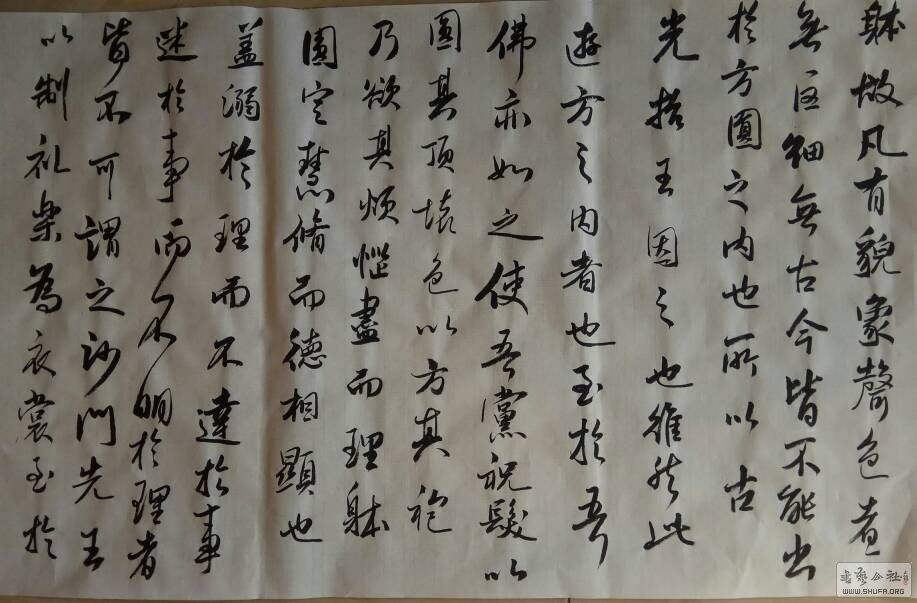 躰故凡有貌象聲色者
無巨細無古今皆不能出
於方圓之内也所以古
先哲王因之也雖然此
遊方之内者也至於吾
佛亦如之使吾黨祝髮以
圓其頂壞色以方其袍
乃欲其煩惱盡而理躰
圓定慧脩而德相顯也
蓋溺於理而不達於事
迷於事而不明於理者
皆不可謂之沙門先王
以制礼樂為衣裳至於
书艺公社
WWW.SHUFA.ORG